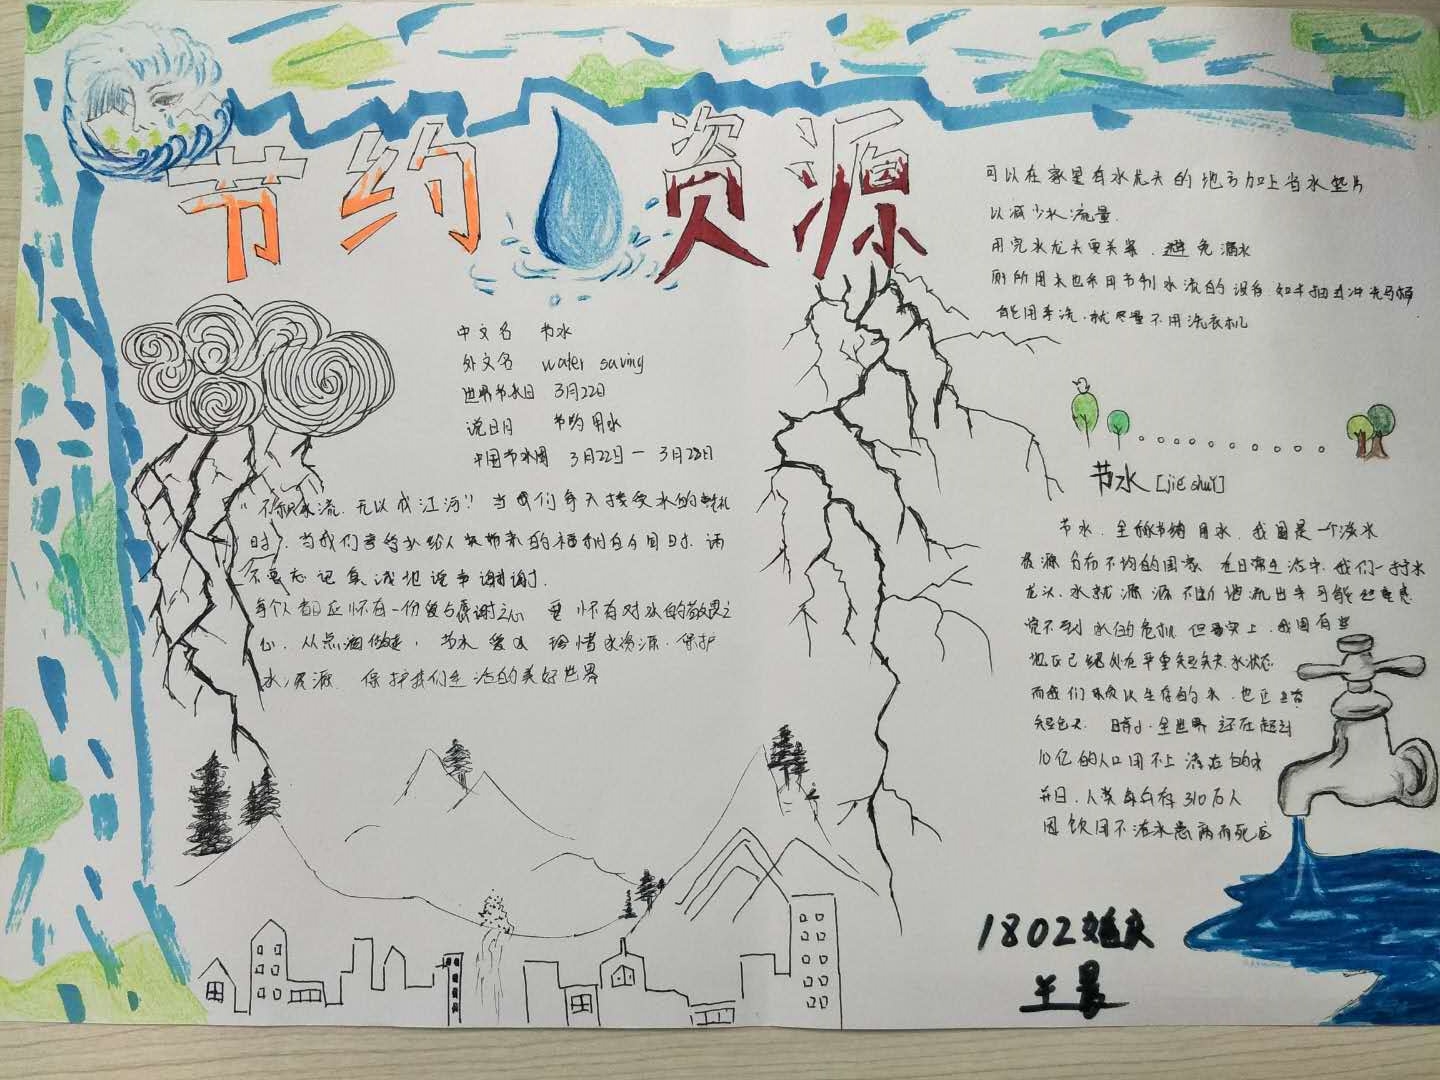 节约 资源
可以在家里有水龙头的地方加上省水垫片
以减少水流量
用完水龙头要关紧,避免漏水
厕所用水也采用节制水流的设备
能用手洗,就尽量不用洗衣机
中文名 节水
外文名 water saving
世界节水日 3月22日
节约用水
中国节水周 3月22日一3月28日
无以成江河!当我们每天接受水的
时,当我们享受水给人类带来的福利
不要忘记真诚地说声谢谢.
每个人都应怀有一份爱与感谢之心 更怀有对水的敬畏之
心,从点滴做起,节水爱水 珍惜水资源,保护
水资源 保护我们生活的美好世界
节水[jié shuǐ]
节水,全称节约用水,我国是一个淡水
资源分布不均的国家 在日常生活中,我们一打水
龙头,水就源源不断地流出来可能丝毫感
觉不到水的危机 但事实上,我国有些
地区已经处在严重缺水状态
而我们赖以生存的水,也正日益
短缺 目前,全世界还在超过
10亿的人口用不上清洁的水
并且,人类每年有310万人
因饮用不洁水患病而死亡
1802